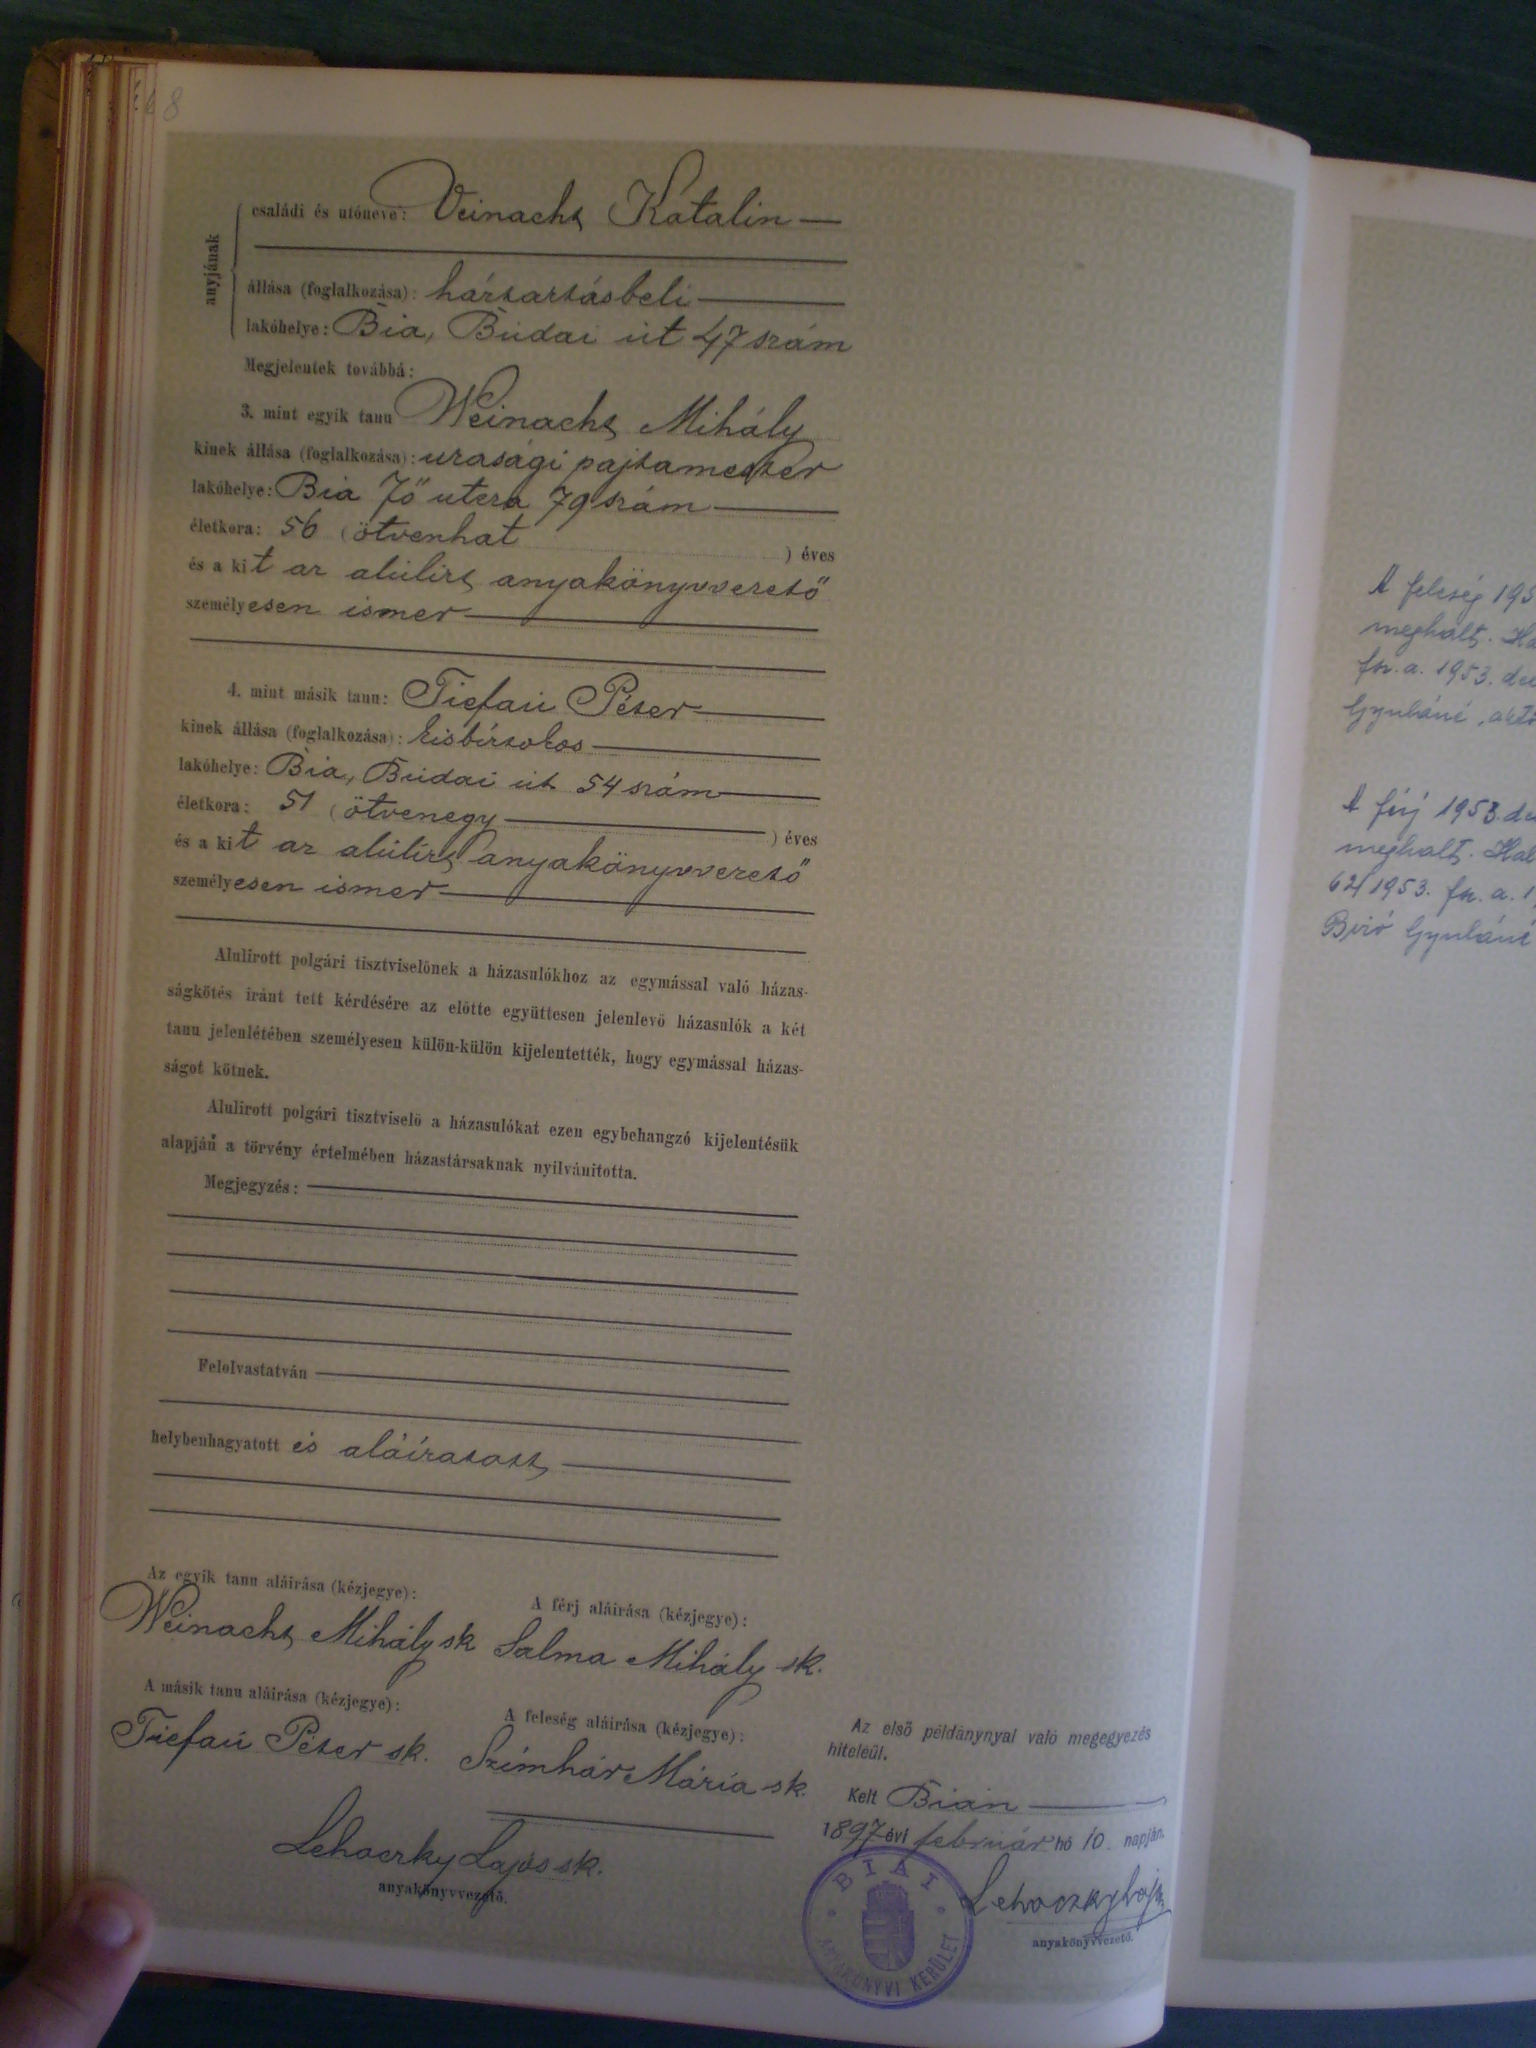 8
anyjának
családi és utóneve: Veinacht Katalin
állása (foglalkozása): háztartásbeli
lakóhelye: Bia, Budai út 47 szám
Megjelentek továbbá:
3. mint egyik tanu Weinacht Mihály
kinek állása (foglalkozása): urasági pajtamester
lakóhelye: Bia Fő utcza 79 szám
életkora: 56 (ötvenhat ) éves
és a kit az alulirt anyakönyvvezető
személyesen ismer
4. mint másik tanu: Tiefau Péter
kinek állása (foglalkozása): kisbirtokos
lakóhelye: Bia, Budai út 54 szám
életkora: 51 (ötvenegy ) éves
és a kit az alulirt anyakönyvvezető
személyesen ismer
Alulirott polgári tisztviselőnek a házasulókhoz az egymással való házas-
ságkötés iránt tett kérdésére az előtte együttesen jelenlevő házasulók a két
tanu jelenlétében személyesen külön-külön kijelentették, hogy egymással házas-
ságot kötnek.
Alulirott polgári tisztviselő a házasulókat ezen egybehangzó kijelentésük
alapján a törvény értelmében házastársaknak nyilvánitotta.
Megjegyzés:
Felolvastatván
helybenhagyatott és aláíratott
Az egyik tanu aláirása (kézjegye):
Weinacht Mihály sk
A férj aláirása (kézjegye):
Salma Mihály sk.
A másik tanu aláirása (kézjegye):
Tiefau Péter sk.
A feleség aláirása (kézjegye):
Szimhár Mária sk.
Lehoczky Lajos sk.
anyakönyvvezető.
Az első példánynyal való megegyezés
hiteléül.
Kelt Bián
1897 évi február hó 10. napján.
Lehoczky Lajos
anyakönyvvezető.
BIAI
ANYAKÖNYVI KERÜLET
A feleség 195
meghalt. Ha
fn. a. 1953. dec
Gyuláné,
A férj 1953. de
meghalt. Hal
62/1953. fn. a. 1
Biró Gyuláné